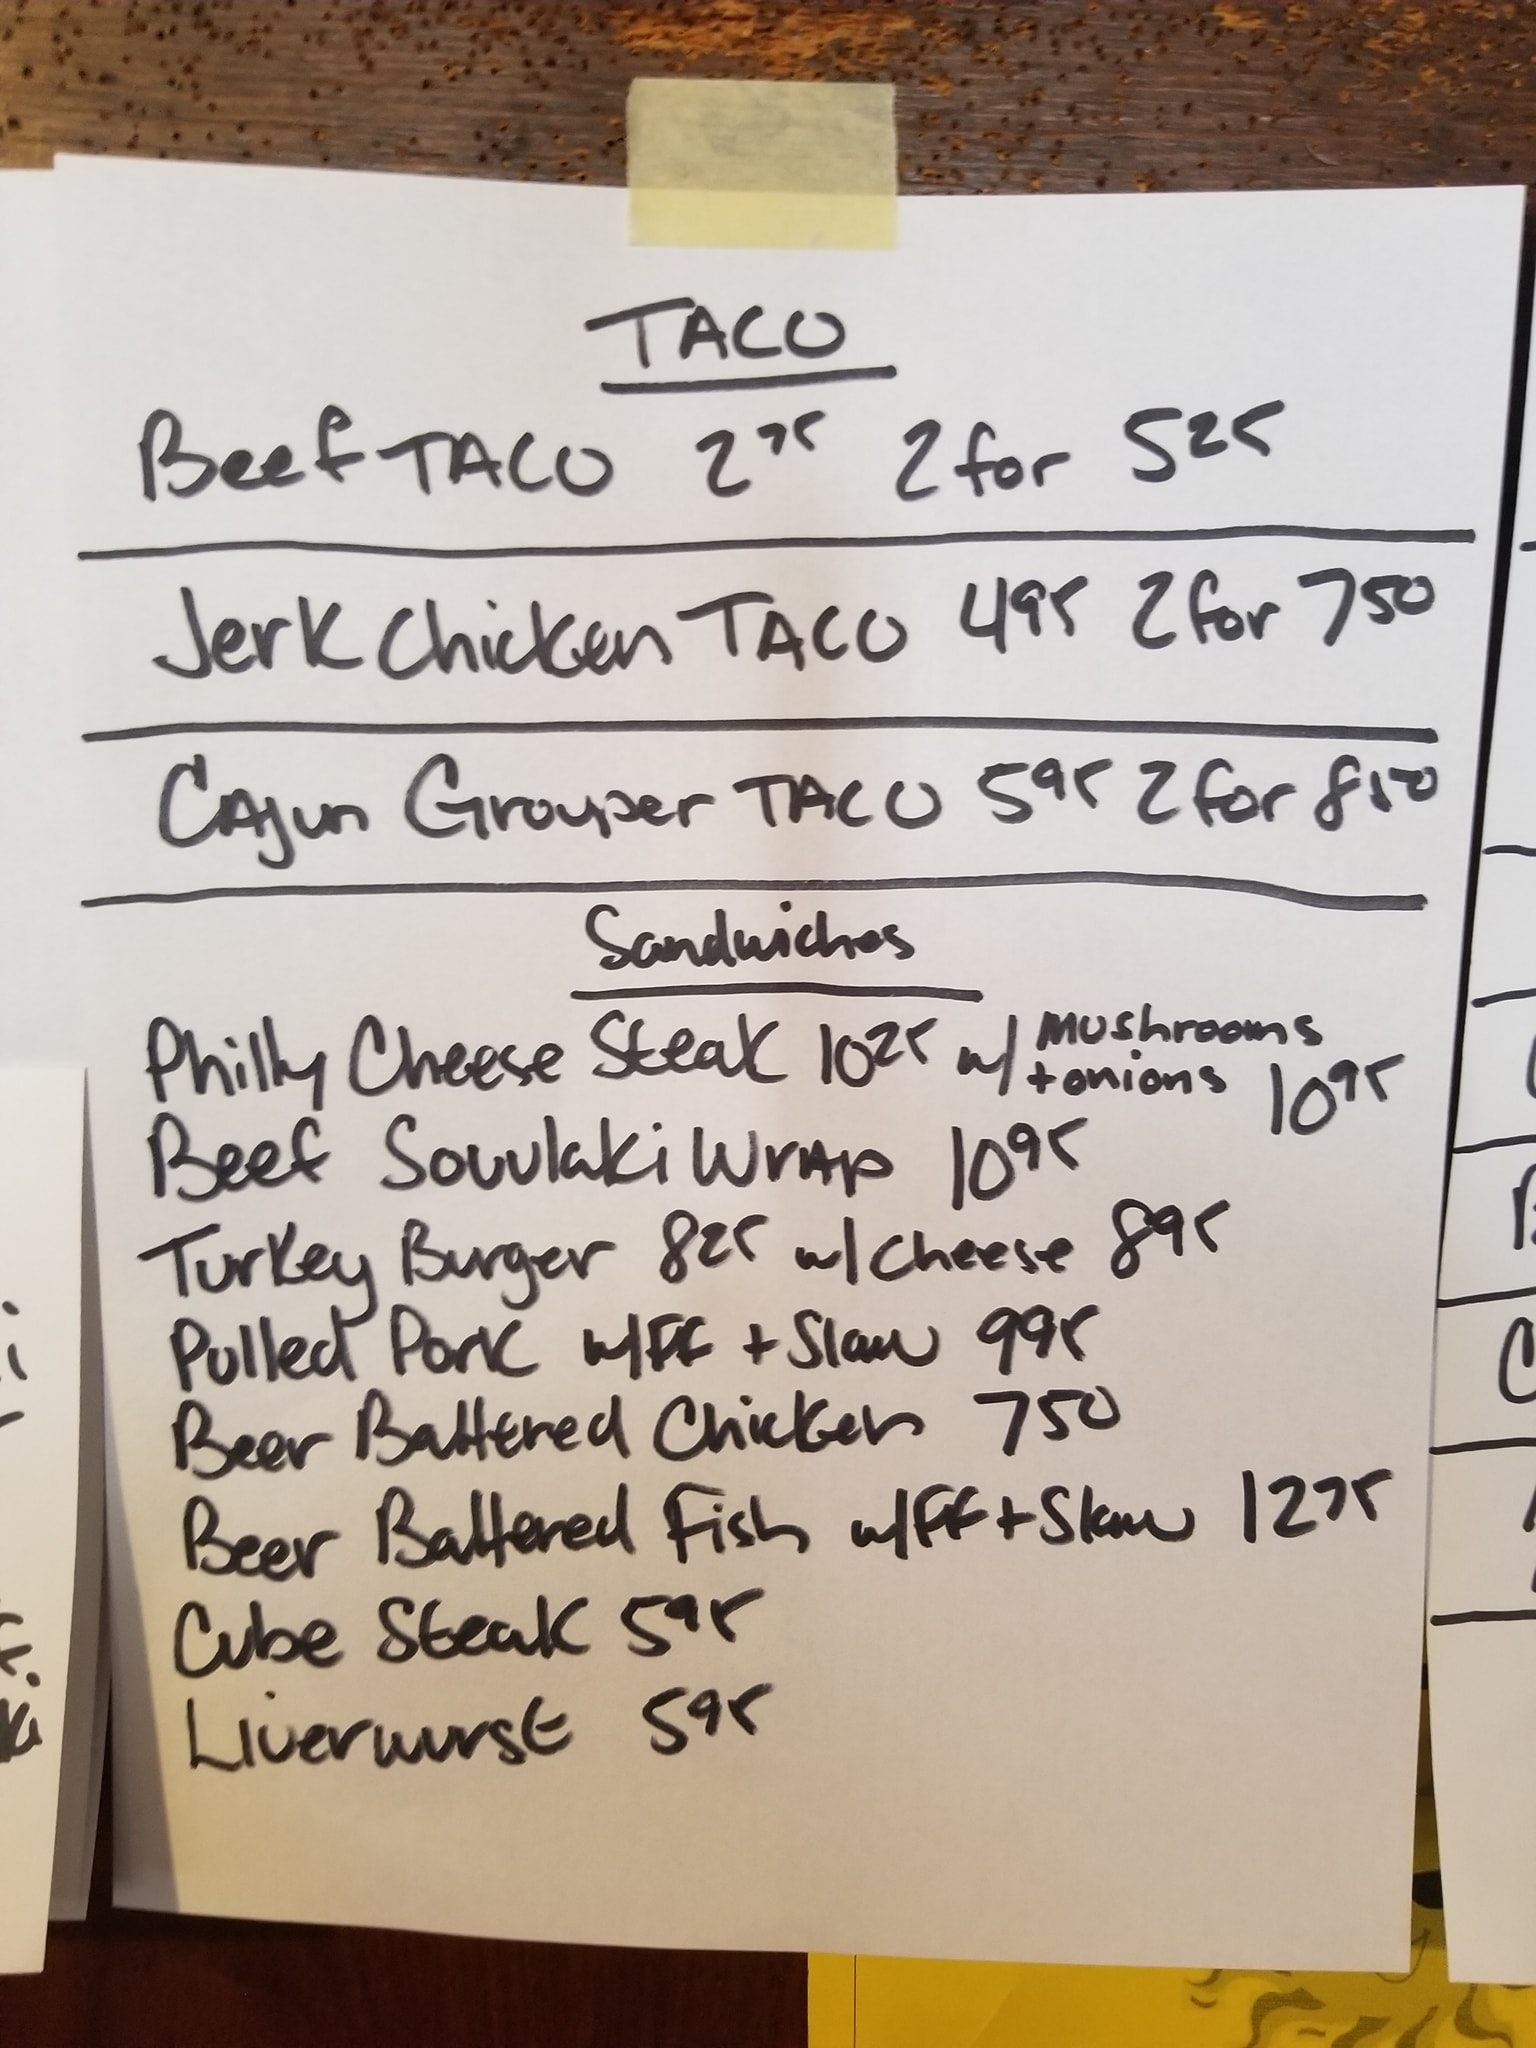 TACO
Beef TACO 275 2 for 525
Jerk Chicken TACO 495 2 for 750
Cajun Grouper TACO 595 2 for 850
Sandwiches
Philly Cheese Steak 1025 w/ mushrooms + onions 1095
Beef Souvlaki Wrap 1095
Turkey Burger 825 w/ cheese 895
Pulled Pork w/FF + Slaw 995
Beer Battered Chicken 750
Beer Battered Fish w/FF + Slaw 1275
Cube Steak 595
Liverwurst 595